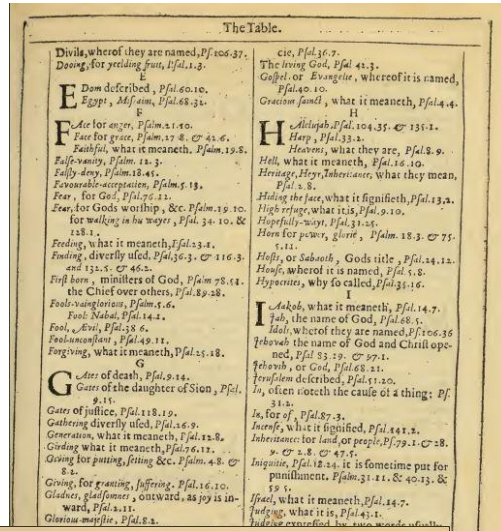 The Table.
Divils, wherof they are named, Ps. 106.37.
Dooing, for yeelding fruit, Psal. 1.3.
E
EDom described, Psal. 60.10.
Egypt, Misraim, Psal. 68.32.
F
FAce for anger, Psalm. 21.10.
Face for grace, Psalm. 17.8. & 42.6.
Faithful, what it meaneth. Psalm. 19.8.
False-vanity, Psalm. 12.3.
Falsly-deny, Psalm. 18.45.
Favourable-acceptation, Psalm. 5.13.
Fear, for God, Psal. 76.12.
Fear, for Gods worship, &c. Psalm. 19.10.
for walking in his wayes, Psal. 34.10. &
128.1.
Feeding, what it meaneth, Psal. 23.1.
Finding, diversly used, Psal. 36.3. & 116.3.
and 132.5. & 46.2.
First born, ministers of God, Psalm 78.51.
the Chief over others, Psal. 89.28.
Fools-vainglorious, Psalm. 5.6.
Fool: Nabal, Psal. 14.1.
Fool, Ævil, Psal. 38 6.
Fool-unconstant, Psal. 49.11.
Forgiving, what it meaneth, Psal. 25.18.
G
GAtes of death, Psal. 9.14.
Gates of the daughter of Sion, Psal.
9.15.
Gates of justice, Psal. 118.19.
Gathering diversly used, Psal. 26.9.
Generation, what it meaneth, Psal. 12.8.
Girding what it meaneth, Psal. 76.11.
Giving for putting, setting &c. Psalm. 4.8. &
8.2.
Giving, for granting, suffering. Psal. 16.10.
Gladnes, gladsomnes, outward, as joy is in-
ward, Psal. 2.11.
Glorious-majestie, Psal. 8.2.
cie, Psal. 36.7.
The living God, Psal 42.3.
Gospel. or Evangelie, whereof it is named,
Psal. 40.10.
Gracious sainct, what it meaneth, Psal. 4.4.
H
HAlelujah, Psal. 104.35. & 135.1.
Harp, Psal. 33.2.
Heavens, what they are, Psal. 8.9.
Hell, what it meaneth, Psal. 16.10.
Heritage, Heyr, Inheritance; what they mean,
Psal. 2.8.
Hiding the face, what it signifieth, Psal. 13.2.
High refuge, what it is, Psal. 9.10.
Hopefully-wayt, Psal. 31.25.
Horn for power, glorie, Psalm. 18.3. & 75-
5.11.
Hosts, or Sabaoth, Gods title, Psal. 24.12.
House, wherof it is named, Psal. 5.8.
Hypocrites, why so called, Psal. 35.16.
I
IAakob, what it meaneth, Psal. 14.7.
Jah, the name of God, Psal. 68.5.
Idols, whetof they are named, Ps. 106.36
Jehovah the name of God and Christ ope-
ned, Psal 83.19. & 97.1.
Jehovih, or God, Psal. 68.21.
Jerusalem described, Psal. 51.20.
In, often noteth the cause of a thing: Ps.
31.2.
In, for of, Psal. 87.3.
Incense, what it signified, Psal. 141.2.
Inheritance: for land, or people, Ps. 79.1. & 28.
9. & 2.8. & 47.5.
Iniquitie, Psal. 18.24. it is sometime put for
punishment. Psalm. 31.11. & 40.13. &
59 5.
Israel, what it meaneth, Psal. 14.7.
Judging, what it is, Psal. 43.1.
Judging expressed by two words usually